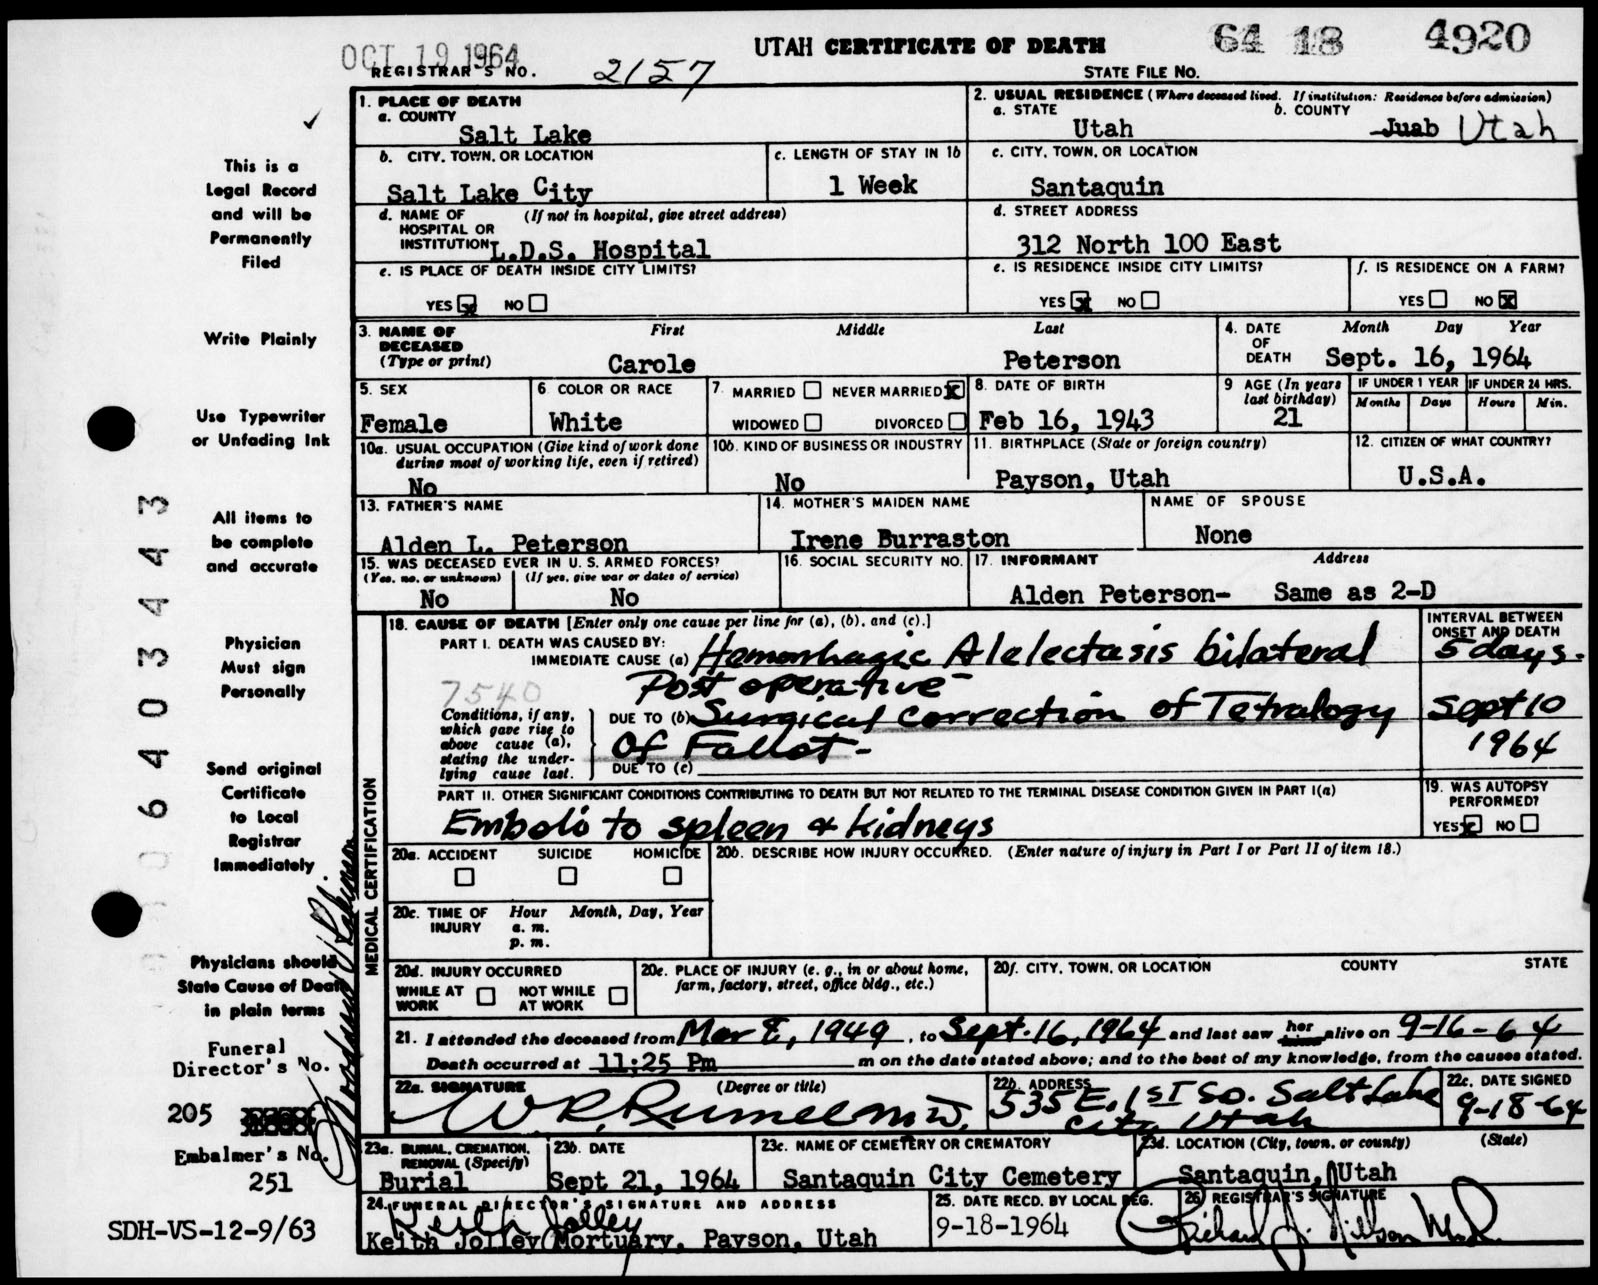 OCT 19 1964
UTAH CERTIFICATE OF DEATH
64 18 4920
REGISTRAR'S NO. 2157
STATE FILE NO.
This is a
Legal Record
and will be
Permanently
Filed
Write Plainly
Use Typewriter
or Unfading Ink
All items to
be complete
and accurate
Physician
Must sign
Personally
Send original
Certificate
to Local
Registrar
Immediately
Physicians should
State Cause of Death
in plain terms
Funeral
Director's No.
205
Embalmer's No.
251
SDH-VS-12-9/63
1. PLACE OF DEATH
a. COUNTY
Salt Lake
2. USUAL RESIDENCE (Where deceased lived. If institution: Residence before admission)
a. STATE
Utah
b. COUNTY
Juab Utah
b. CITY, TOWN, OR LOCATION
Salt Lake City
c. LENGTH OF STAY IN 1b
1 Week
c. CITY, TOWN, OR LOCATION
Santaquin
d. NAME OF (If not in hospital, give street address)
HOSPITAL OR
INSTITUTION L.D.S. Hospital
d. STREET ADDRESS
312 North 100 East
e. IS PLACE OF DEATH INSIDE CITY LIMITS?
YES x NO
e. IS RESIDENCE INSIDE CITY LIMITS?
YES x NO
f. IS RESIDENCE ON A FARM?
YES NO x
3. NAME OF First Middle Last
DECEASED
(Type or print) Carole Peterson
4. DATE Month Day Year
OF
DEATH Sept. 16, 1964
5. SEX
Female
6 COLOR OR RACE
White
7. MARRIED NEVER MARRIED x
WIDOWED DIVORCED
8. DATE OF BIRTH
Feb 16, 1943
9 AGE (In years
last birthday)
21
IF UNDER 1 YEAR
Months Days
IF UNDER 24 HRS.
Hours Min.
10a. USUAL OCCUPATION (Give kind of work done
during most of working life, even if retired)
No
10b. KIND OF BUSINESS OR INDUSTRY
No
11. BIRTHPLACE (State or foreign country)
Payson, Utah
12. CITIZEN OF WHAT COUNTRY?
U.S.A.
13. FATHER'S NAME
Alden L. Peterson
14. MOTHER'S MAIDEN NAME
Irene Burraston
NAME OF SPOUSE
None
15. WAS DECEASED EVER IN U. S. ARMED FORCES?
(Yes, no, or unknown) (If yes, give war or dates of service)
No No
16. SOCIAL SECURITY NO.
17. INFORMANT Address
Alden Peterson- Same as 2-D
MEDICAL CERTIFICATION
18. CAUSE OF DEATH [Enter only one cause per line for (a), (b), and (c).]
INTERVAL BETWEEN
ONSET AND DEATH
PART I. DEATH WAS CAUSED BY:
IMMEDIATE CAUSE (a) Hemorrhagic Atelectasis bilateral 5 days.
7540 Post operative -
Conditions, if any,
which gave rise to
above cause (a),
stating the under-
lying cause last.
DUE TO (b) Surgical correction of Tetralogy Sept 10
of Fallot - 1964
DUE TO (c)
PART II. OTHER SIGNIFICANT CONDITIONS CONTRIBUTING TO DEATH BUT NOT RELATED TO THE TERMINAL DISEASE CONDITION GIVEN IN PART I(a)
Emboli to spleen & kidneys
19. WAS AUTOPSY
PERFORMED?
YES x NO
20a. ACCIDENT SUICIDE HOMICIDE
20b. DESCRIBE HOW INJURY OCCURRED. (Enter nature of injury in Part I or Part II of item 18.)
20c. TIME OF Hour Month, Day, Year
INJURY a. m.
p. m.
20d. INJURY OCCURRED
WHILE AT NOT WHILE
WORK AT WORK
20e. PLACE OF INJURY (e. g., in or about home,
farm, factory, street, office bldg., etc.)
20f. CITY, TOWN, OR LOCATION COUNTY STATE
21. I attended the deceased from Mar 8, 1949, to Sept. 16, 1964 and last saw her him alive on 9-16-64
Death occurred at 11:25 Pm m on the date stated above; and to the best of my knowledge, from the causes stated.
22a. SIGNATURE (Degree or title)
W. R. Rumel M.D.
22b. ADDRESS
535 E. 1st So. Salt Lake
City, Utah
22c. DATE SIGNED
9-18-64
23a. BURIAL, CREMATION,
REMOVAL (Specify)
Burial
23b. DATE
Sept 21, 1964
23c. NAME OF CEMETERY OR CREMATORY
Santaquin City Cemetery
23d. LOCATION (City, town, or county) (State)
Santaquin, Utah
24. FUNERAL DIRECTOR'S SIGNATURE AND ADDRESS
Keith Jolley
Keith Jolley Mortuary, Payson, Utah
25. DATE RECD. BY LOCAL REG.
9-18-1964
26. REGISTRAR'S SIGNATURE